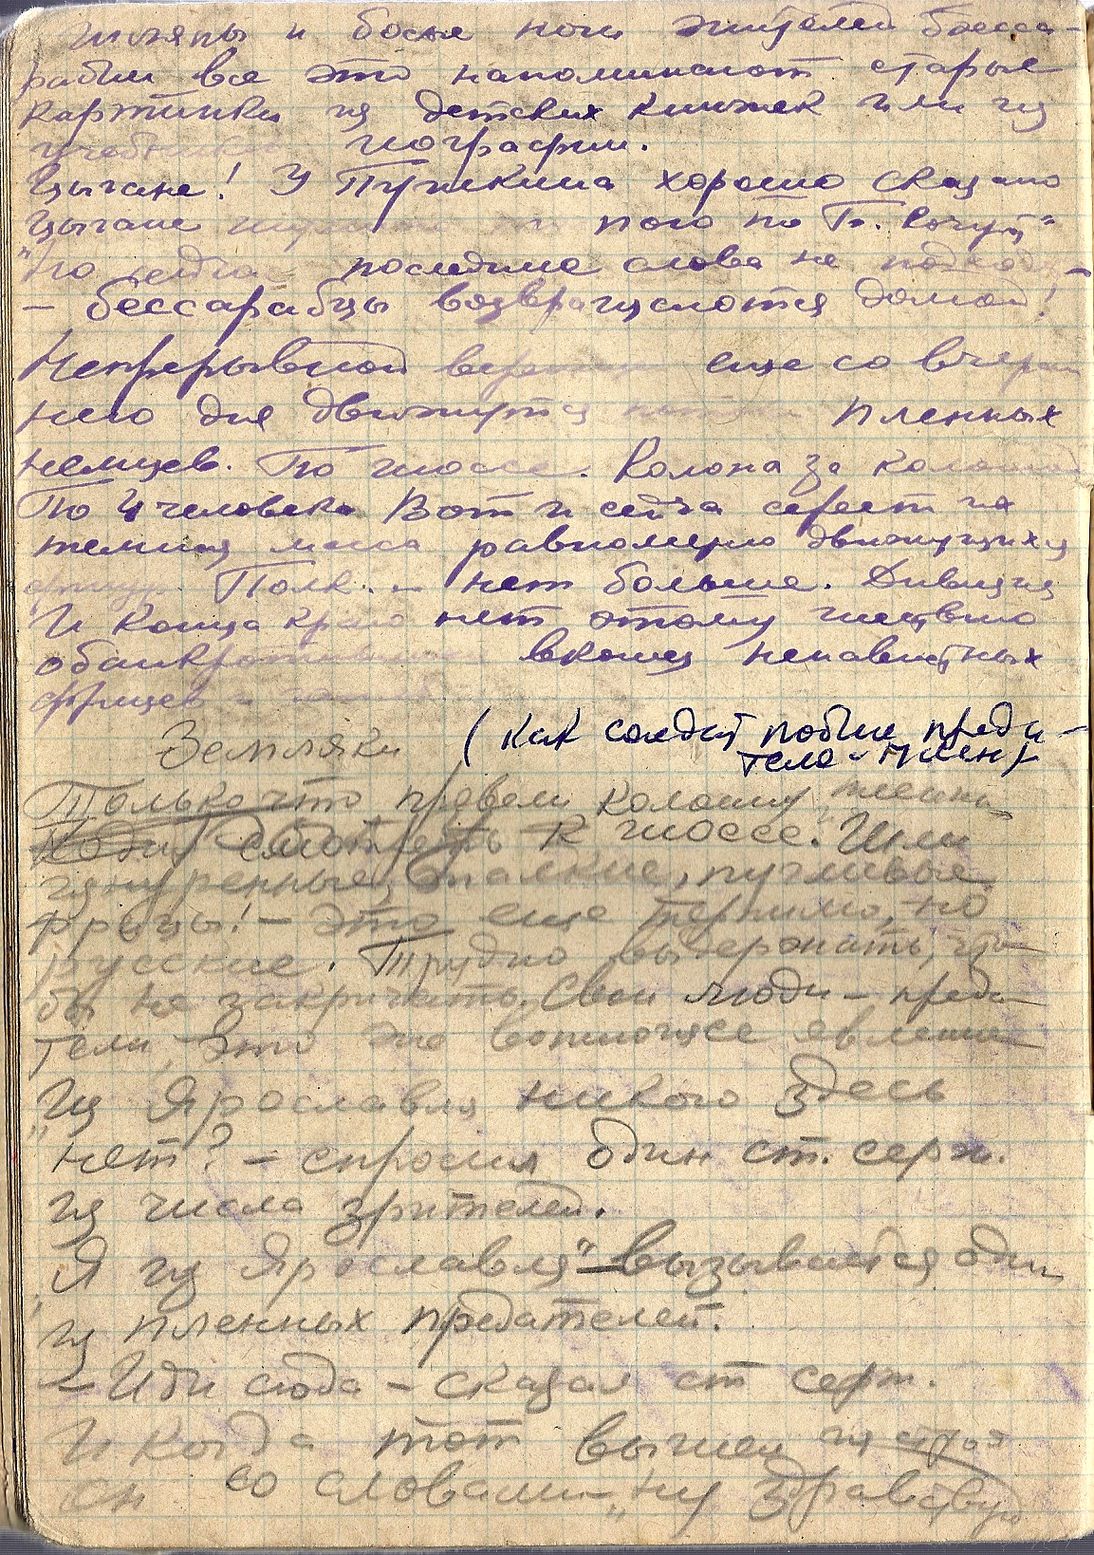 шляпы и босые ноги жителей бесса-
рабии все это напоминают старые
картинки из детских книжек или из
учебника географии.
Цыгане! У Пушкина хорошо сказано
Цыгане по
"Но последние слова не подход
- бессарабцы возвращаются домой!
Непрерывной еще со вчераш
него дня движутся пленных
немцев. По шоссе. Колона за колоной
По 4 человека Вот и сейча сереет на
темная масса равномерно движущихся
фигур Полк. - нет больше. Дивизия
И конца краю нет этому шествию
обанкротившихся вконец ненавистных
фрицев
Земляки (как солдат побил преда-
теля-пленн)
Только что провели колонну пленн
Ходил смотреть к шоссе. Шли
изнуренные, жалкие, пугливые
фрицы! - это еще терпимо, но
русские. Трудно выдержать, что
бы не закричать. Свои люди - преда
тели, это же вопиющее явление
"Из Ярославля никого здесь
нет? - спросил один ст. серж.
из числа зрителей.
"Я из Ярославля" - вызывается один
из пленных предателей.
- Иди сюда - сказал ст серж.
И когда тот вышел из строя
он со словами - "ну здравствуй